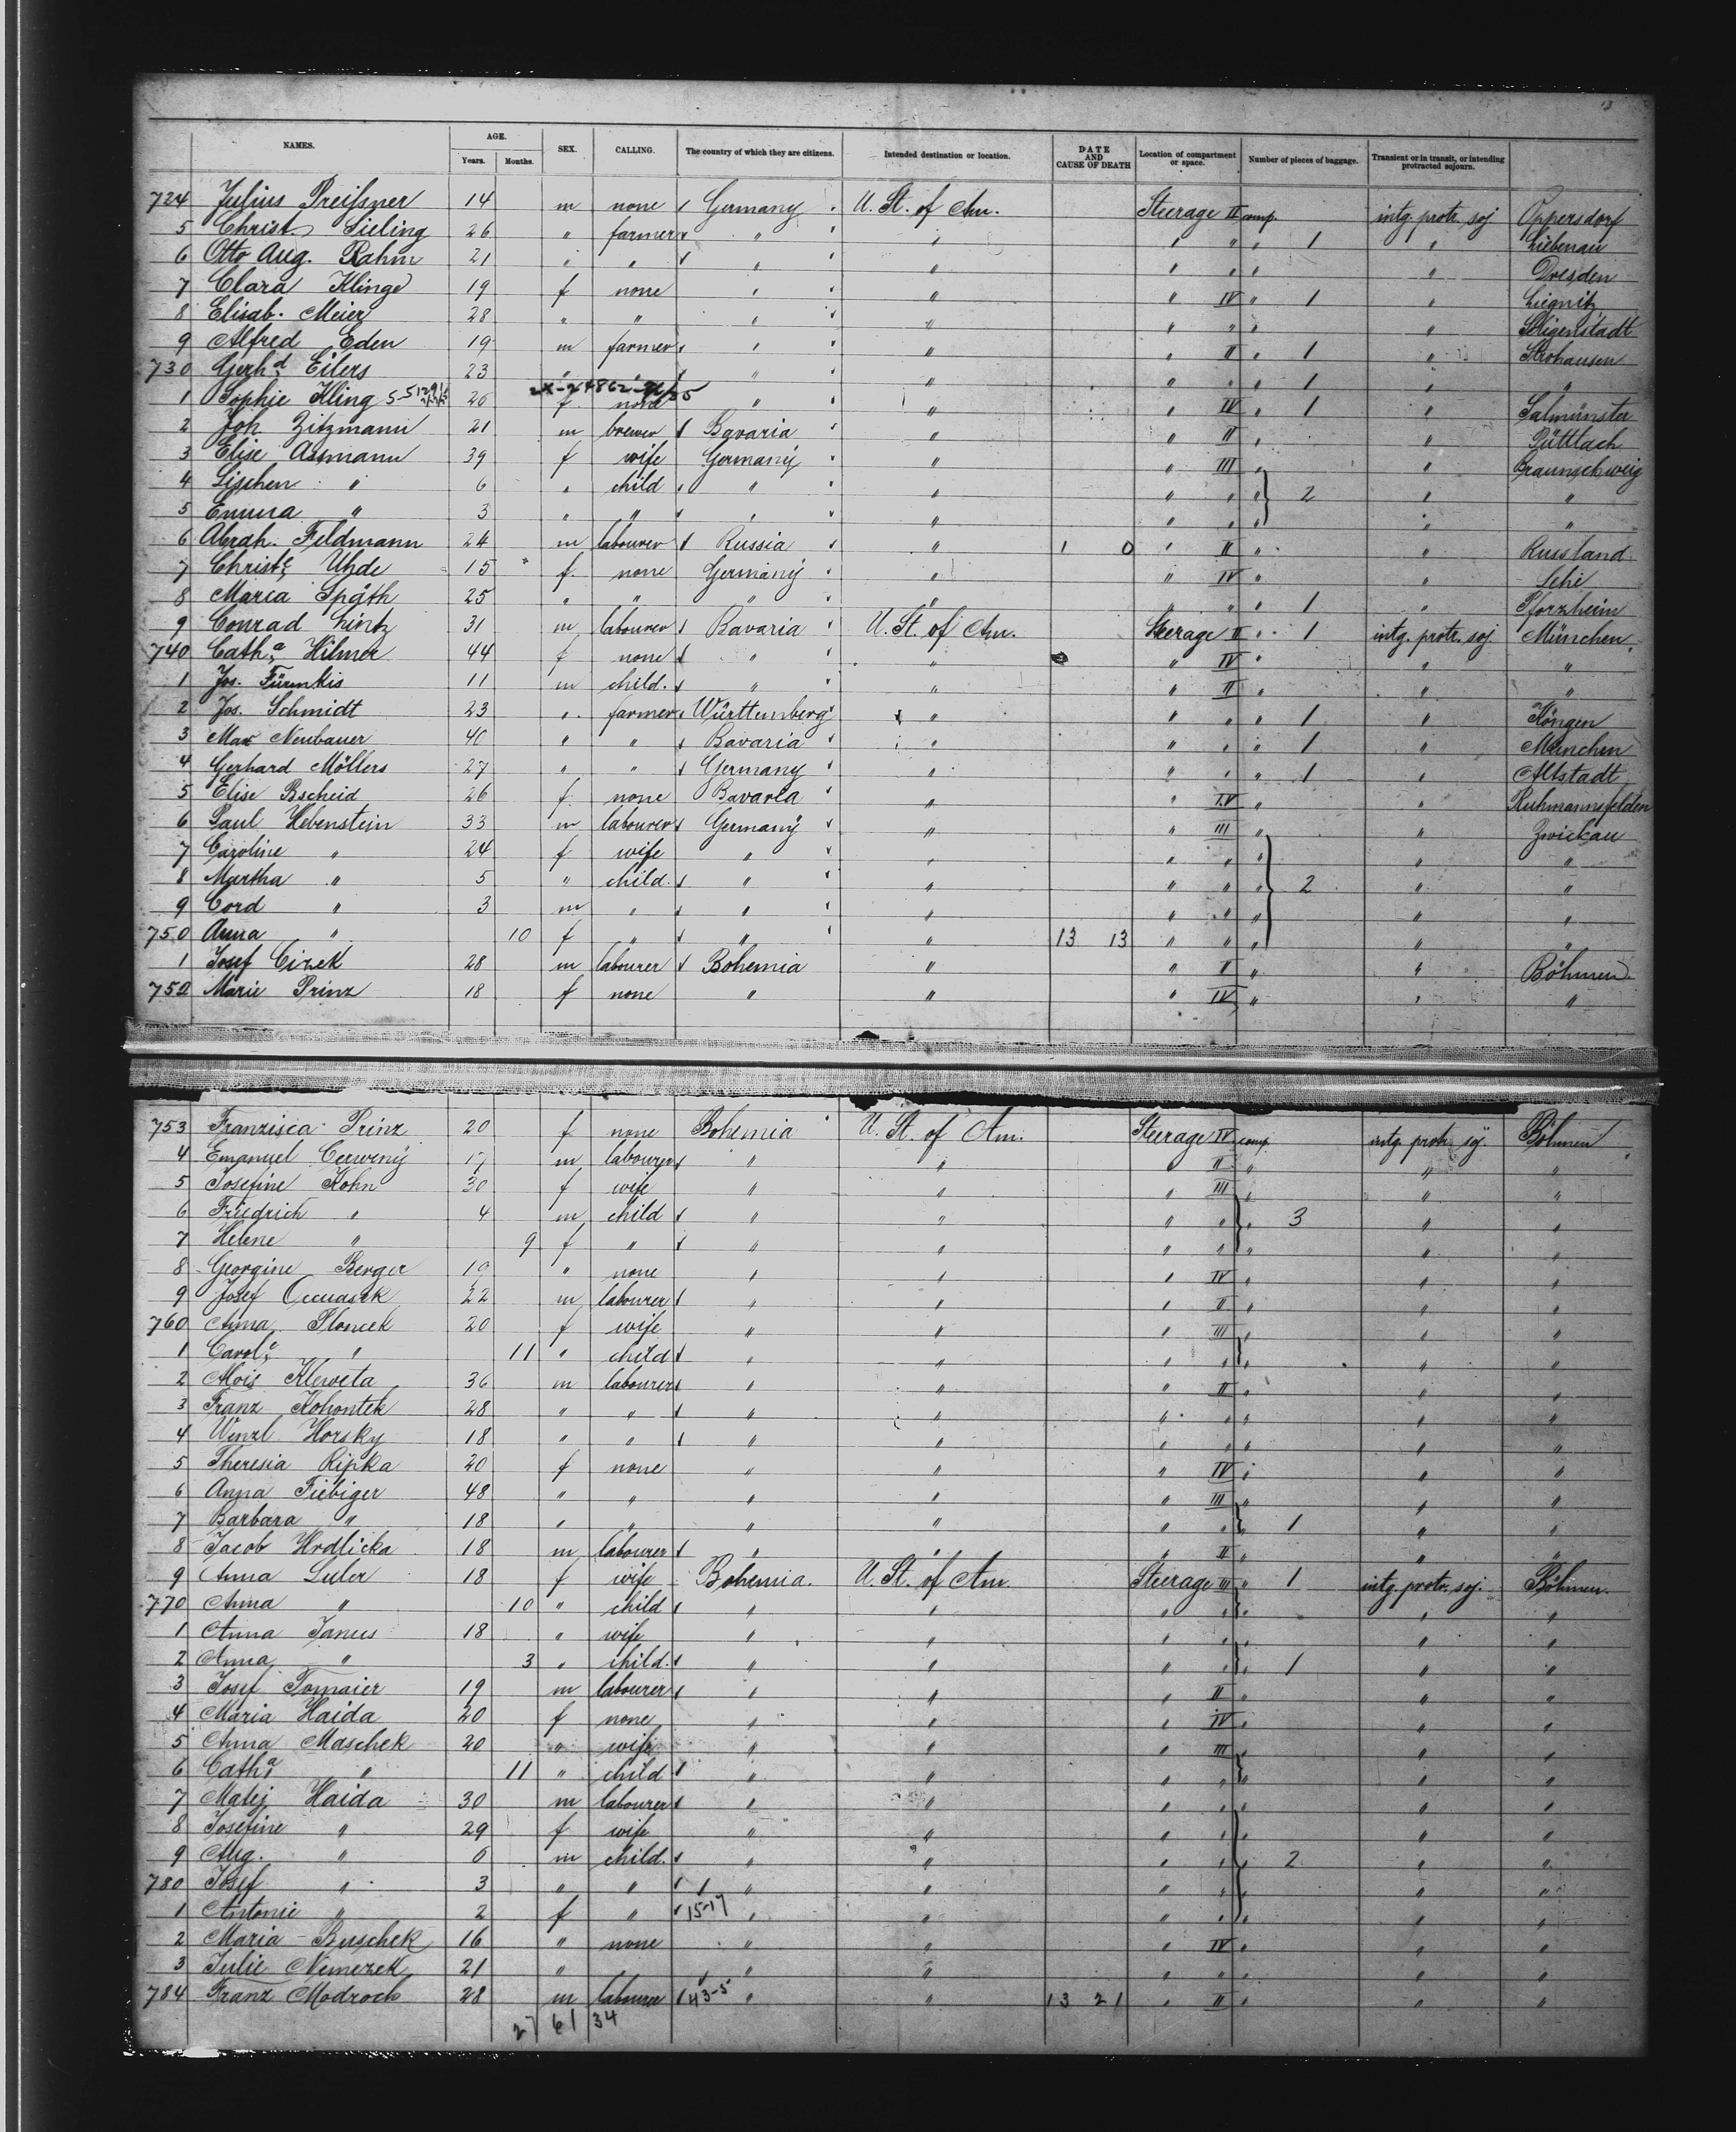 13
NAMES. AGE. Years. Months. SEX. CALLING. The country of which they are citizens. Intended destination or location. DATE AND CAUSE OF DEATH Location of compartment or space. Number of pieces of baggage. Transient or in transit, or intending protracted sojourn.
724 Julius Preißner 14 m none Germany U. St. of Am. Steerage II comp. intg. protr. soj Oppersdorf
5 Christ. Sieling 26 " farmer " " " " " 1 " Liebenau
6 Otto Aug. Rahm 21 " " " " " " " " Dresden
7 Clara Klinge 19 f none " " " IV " 1 " Liegnitz
8 Elisab. Meier 28 " " " " " " " " Seligenstadt
9 Alfred Eden 19 m farmer " " " II " 1 " Strohausen
730 Gerhd Eilers 23 " " " " " " " 1 " "
1 Sophie Kling 26 f none " " " IV " 1 " Salmünster
2 Joh. Zitzmann 21 m brewer Bavaria " " II " " Püttlach
3 Elise Assmann 39 f wife Germany " " III " " Braunschweig
4 Lischen " 6 " child " " " " " 2 " "
5 Emma " 3 " " " " " " " " "
6 Abrah. Feldmann 24 m labourer Russia " 1 0 " II " " Russland
7 Christe Uhde 15 f none Germany " " IV " " Lehe
8 Maria Späth 25 " " " " " " " 1 " Pforzheim
9 Conrad Lintz 31 m labourer Bavaria U. St. of Am. Steerage II " 1 intg. protr. soj München
740 Catha Hilmer 44 f none " " " IV " " "
1 Jos. Fürmkis 11 m child. " " " II " " "
2 Jos. Schmidt 23 " farmer Württemberg " " " " 1 " Köngen
3 Max Neubauer 40 " " Bavaria " " " " 1 " München
4 Gerhard Möllers 27 " " Germany " " " " 1 " Altstadt
5 Elise Bscheid 26 f none Bavaria " " IV " " Ruhmannsfelden
6 Paul Hebenstein 33 m labourer Germany " " III " " Zwickau
7 Caroline " 24 f wife " " " " " " "
8 Martha " 5 " child. " " " " " 2 " "
9 Cord " 3 m " " " " " " " "
750 Anna " 10 f " " " 13 13 " " " " "
1 Josef Cizek 28 m labourer Bohemia " " II " " Böhmen
752 Marie Prinz 18 f none " " " IV " " "
753 Franzisca Prinz 20 f none Bohemia U. St. of Am. Steerage IV comp. intg. protr. soj. Böhmen
4 Emanuel Cerweny 17 m labourer " " " II " " "
5 Josefine Kohn 30 f wife " " " III " " "
6 Friedrich " 4 m child " " " " " 3 " "
7 Helene " 9 f " " " " " " " "
8 Georgine Berger 19 " none " " " IV " " "
9 Josef 22 m labourer " " " II " " "
760 Anna Kloncek 20 f wife " " " III " " "
1 Carole " 11 " child " " " " " " "
2 Alois Kleweta 36 m labourer " " " II " " "
3 Franz Kohontek 28 " " " " " " " " "
4 Wenzl Horsky 18 " " " " " " " " "
5 Theresia Ripka 20 f none " " " IV " " "
6 Anna Fiebiger 48 " " " " " III " " "
7 Barbara " 18 " " " " " " " 1 " "
8 Jacob Hrdlicka 18 m labourer " " " II " " "
9 Anna Suler 18 f wife Bohemia. U. St. of Am. Steerage III " 1 intg. protr. soj. Böhmen.
770 Anna " 10 " child " " " " " " "
1 Anna Janus 18 " wife " " " " " " "
2 Anna " 3 " child. " " " " " 1 " "
3 Josef Tomaier 19 m labourer " " " II " " "
4 Maria Haida 20 f none " " " IV " " "
5 Anna Maschek 20 " wife " " " III " " "
6 Catha " 11 " child " " " " " " "
7 Matej Haida 30 m labourer " " " " " " "
8 Josefine " 29 f wife " " " " " " "
9 Aug. " 6 m child. " " " " " 2 " "
780 Josef " 3 " " " " " " " " "
1 Antonie " 2 f " 15-17 " " " " " " "
2 Maria Buschek 16 " none " " " IV " " "
3 Julie Nemezek 21 " " " " " " " " "
784 Franz Modroch 28 m labourer 43-5 " " 13 21 " II " " "
27 61 34